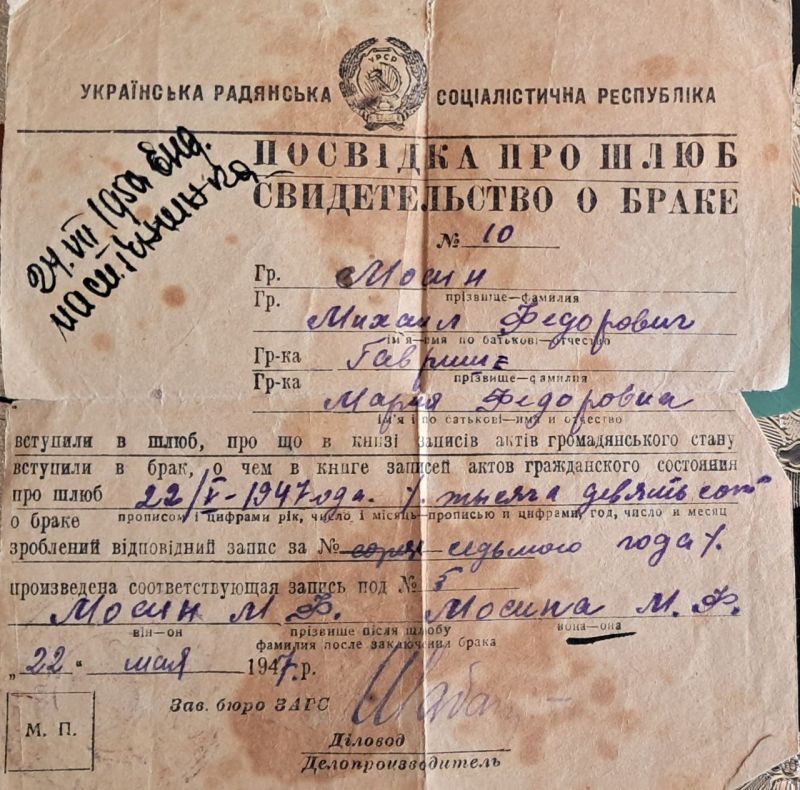 УРСР
УКРАЇНСЬКА РАДЯНСЬКА СОЦІАЛІСТИЧНА РЕСПУБЛІКА
ПОСВІДКА ПРО ШЛЮБ
СВИДЕТЕЛЬСТВО О БРАКЕ
24.VII/1950
№ 10
Гр. Мосин
прізвище—фамилия
Гр. Михаил Федорович
ім'я—имя по батькові—отчество
Гр-ка
прізвище—фамилия
Гр-ка Мария Федоровна
ім'я і по батькові—имя и отчество
вступили в шлюб, про що в книзі записів актів громадянського стану
вступили в брак, о чем в книге записей актов гражданского состояния
про шлюб 22/V-1947 года. /. тысяча девятьсот
о браке прописом і цифрами рік, число і місяць—прописью и цифрами, год, число и месяц
зроблений відповідний запис за № седьмого года /.
произведена соответствующая запись под № 5
Мосин М. Ф. Мосина М. Ф.
він—он прізвище після шлюбу вона—она
фамилия после заключения брака
„22“ мая 1947.р.
Зав. бюро ЗАГС
М. П.
Діловод
Делопроизводитель